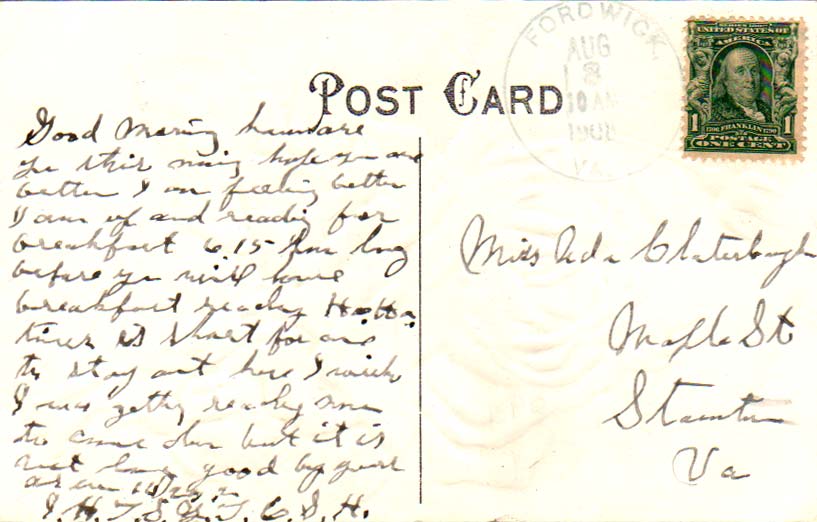 FORDWICK
AUG
10 AM
1908
VA.
SERIES 1902
UNITED STATES OF
AMERICA
1 1706 FRANKLIN 1790 1
POSTAGE
ONE CENT
POST CARD
Good Morning how are
you this moring hope you are
better I am feeling better
I am up and ready for
breakfast 6.15 how long
before you will have
breakfast ready Ha. Ha.
times is short for me
to stay out here I wish
I was getting ready now
to come over but it is
not long good by your
as ever
I. H. T. S. Y. T. C. S. H.
Miss Ada Claterbaugh
Maple St
Staunton
Va